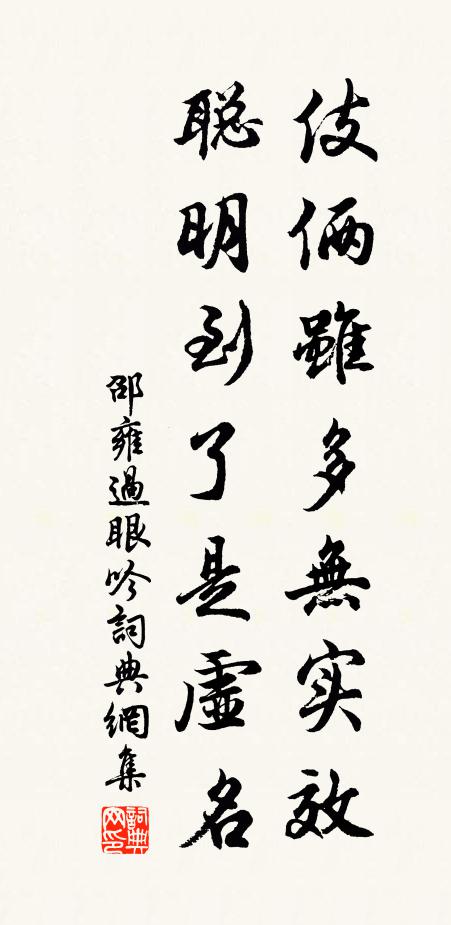 伎倆雖多無实效
聪明到了是虛名
邵雍過眼吟詞典網集
詞典网印